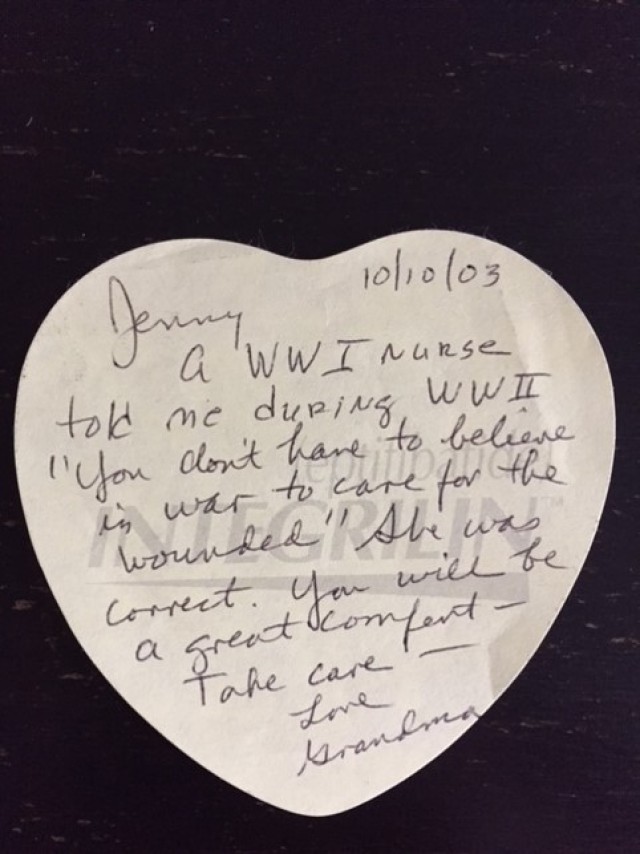 10/10/03
Jenny
a WW I nurse
told me during WW II
"You don't have to believe
in war to care for the
wounded" She was
correct. You will be
a great comfort —
Take care —
Love
Grandma
(eptifibatide)
INTEGRILIN™